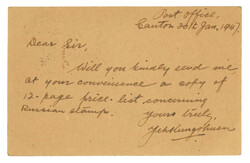 Post Office,
Canton 30th Jan, 1907
Dear Sir,
Will you kindly send me
at your convenience a copy of
12-page price-list concerning
Russian stamp.
Yours truly,